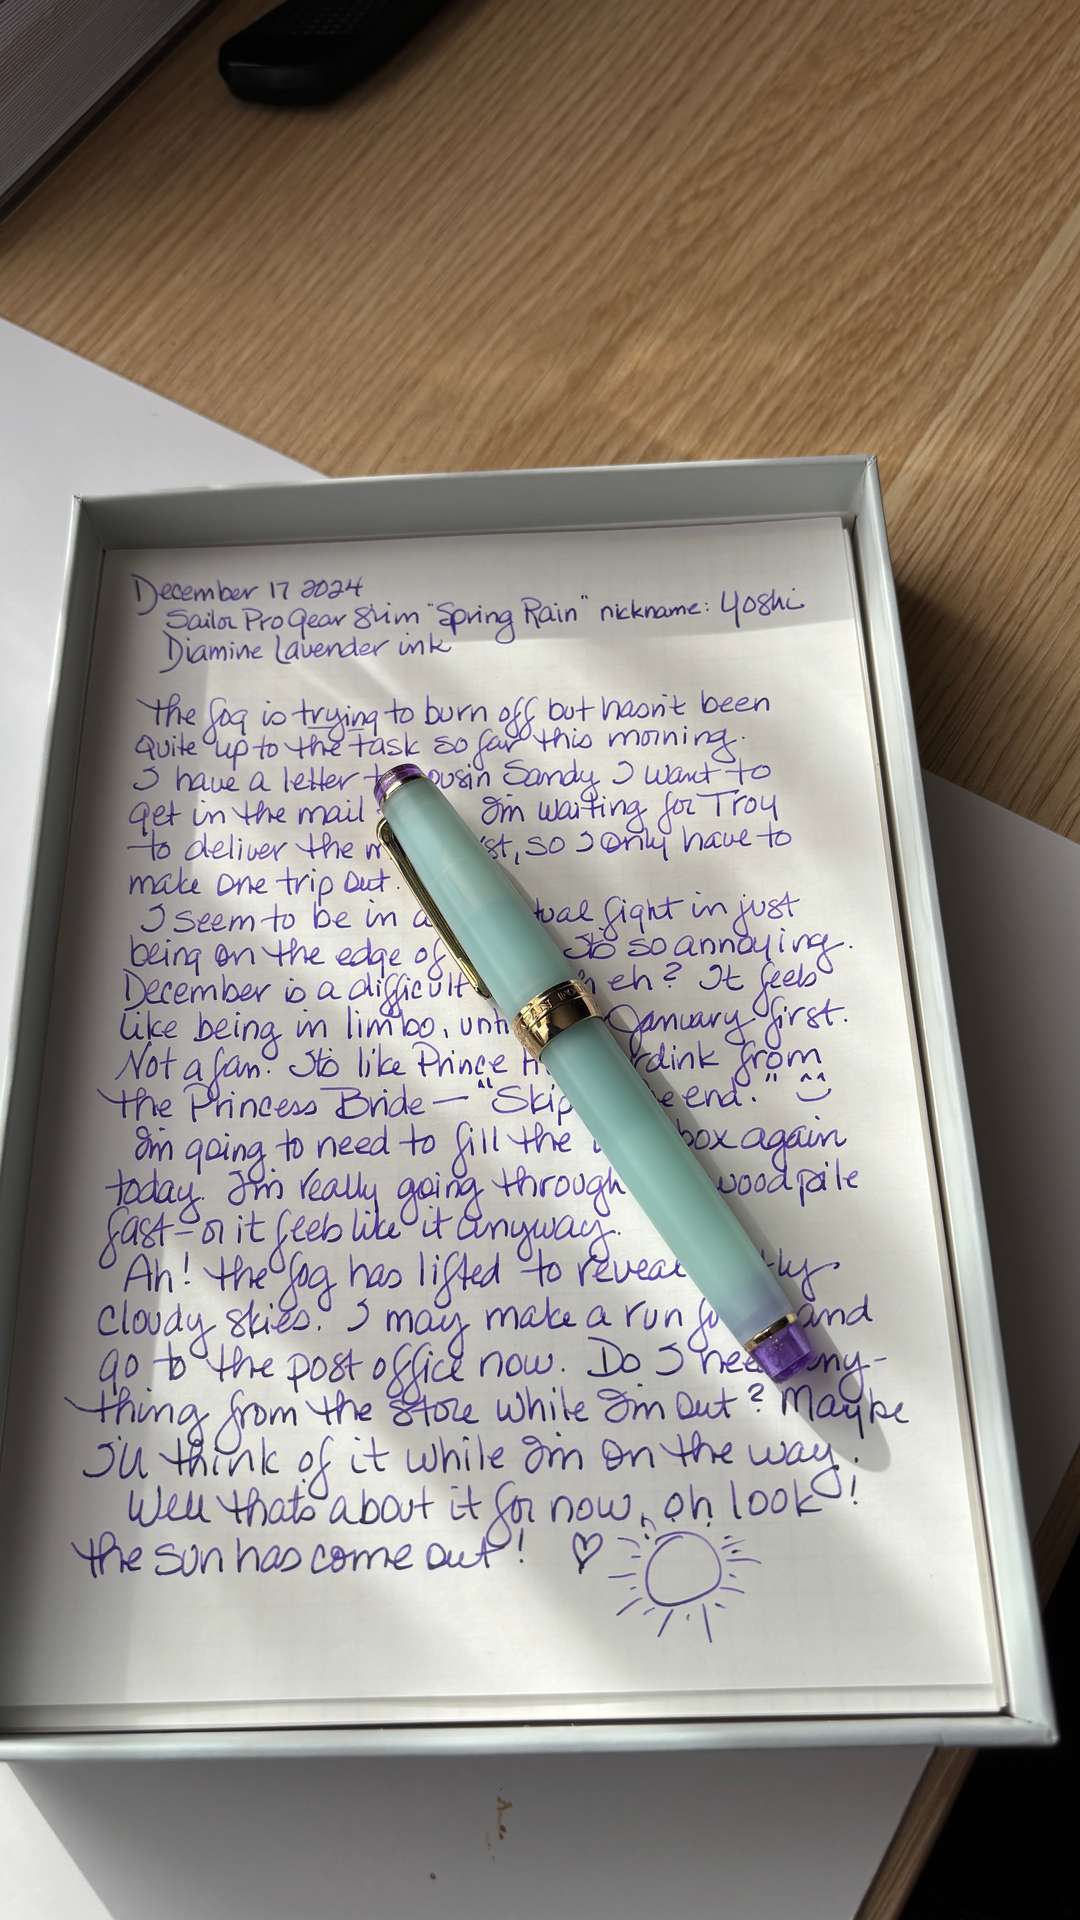 December 17 2024
Sailor Pro Gear Slim "Spring Rain" nickname: Yoshi
Diamine Lavender ink
The fog is trying to burn off but hasn't been
quite up to the task so far this morning.
I have a letter Sandy I want to
get in the mail I'm waiting for Troy
to deliver the so I only have to
make one trip out.
I seem to be in a fight in just
being on the edge of It's so annoying.
December is a difficult eh? It feels
like being in limbo, January first.
Not a fan. It's like Prince from
the Princess Bride — "Skip end." ^^
I'm going to need to fill the box again
today. I'm really going through woodpile
fast - or it feels like it anyway.
Ah! The fog has lifted to reveal
cloudy skies. I may make a run and
go to the post office now. Do I need any-
thing from the store while I'm out? Maybe
I'll think of it while I'm on the way.
Well that's about it for now, oh look!
the sun has come out! ♡